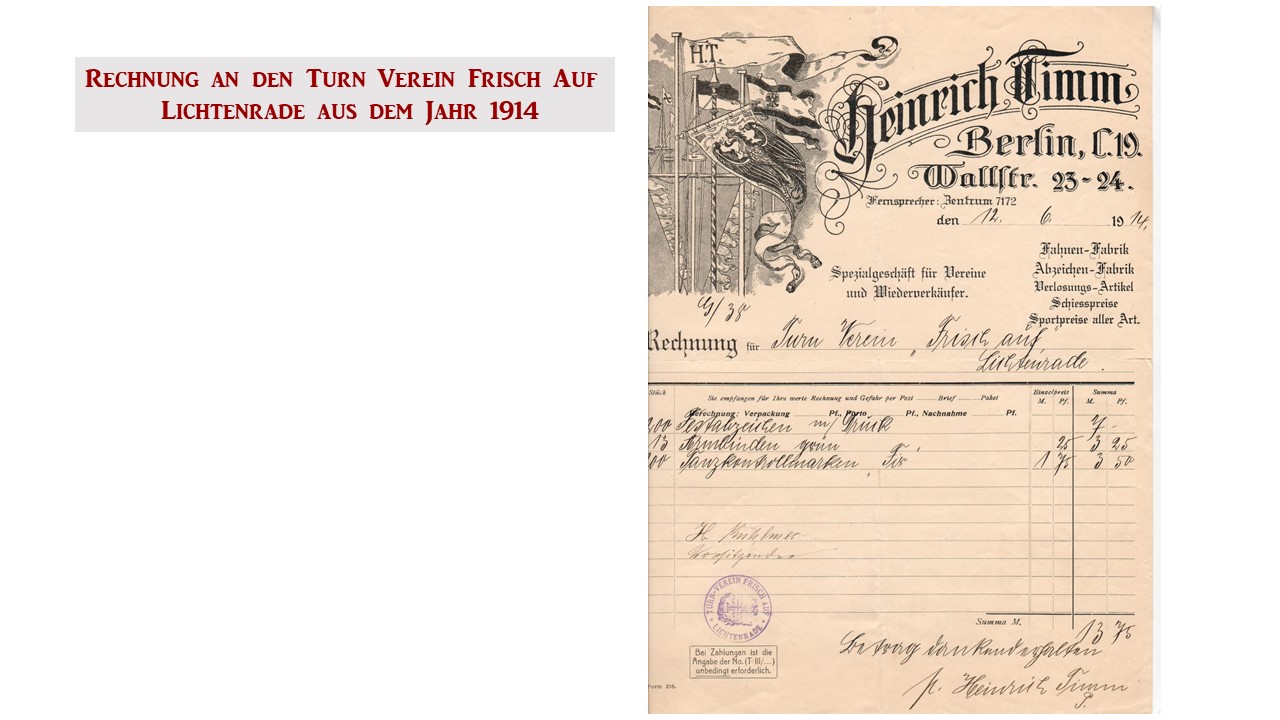 Rechnung an den Turn Verein Frisch Auf
Lichtenrade aus dem Jahr 1914
H.T.
Heinrich Timm
Berlin, C.19.
Wallstr. 23-24.
Fernsprecher: Zentrum 7172
den 12. 6. 1914,
Fahnen-Fabrik
Abzeichen-Fabrik
Verlosungs-Artikel
Schiesspreise
Sportpreise aller Art.
Spezialgeschäft für Vereine
und Wiederverkäufer.
Rechnung für Turn Verein „Frisch auf"
Lichtenrade.
Stück Sie empfangen für Ihre werte Rechnung und Gefahr per Post Brief Paket Einzelpreis Summa
M. Pf. M. Pf.
Berechnung: Verpackung Pf., Porto Pf., Nachnahme Pf.
Festabzeichen m/ Druck 7 -
13 Armbinden grün 25 3 25
Tanzkontrollmarken 1 75 3 50
H.
Vorsitzender
TURN-VEREIN FRISCH AUF
LICHTENRADE
Summa M. 13 75
Bei Zahlungen ist die
Angabe der No. (T III/....)
unbedingt erforderlich.
Betrag dankend erhalten
Heinrich Timm